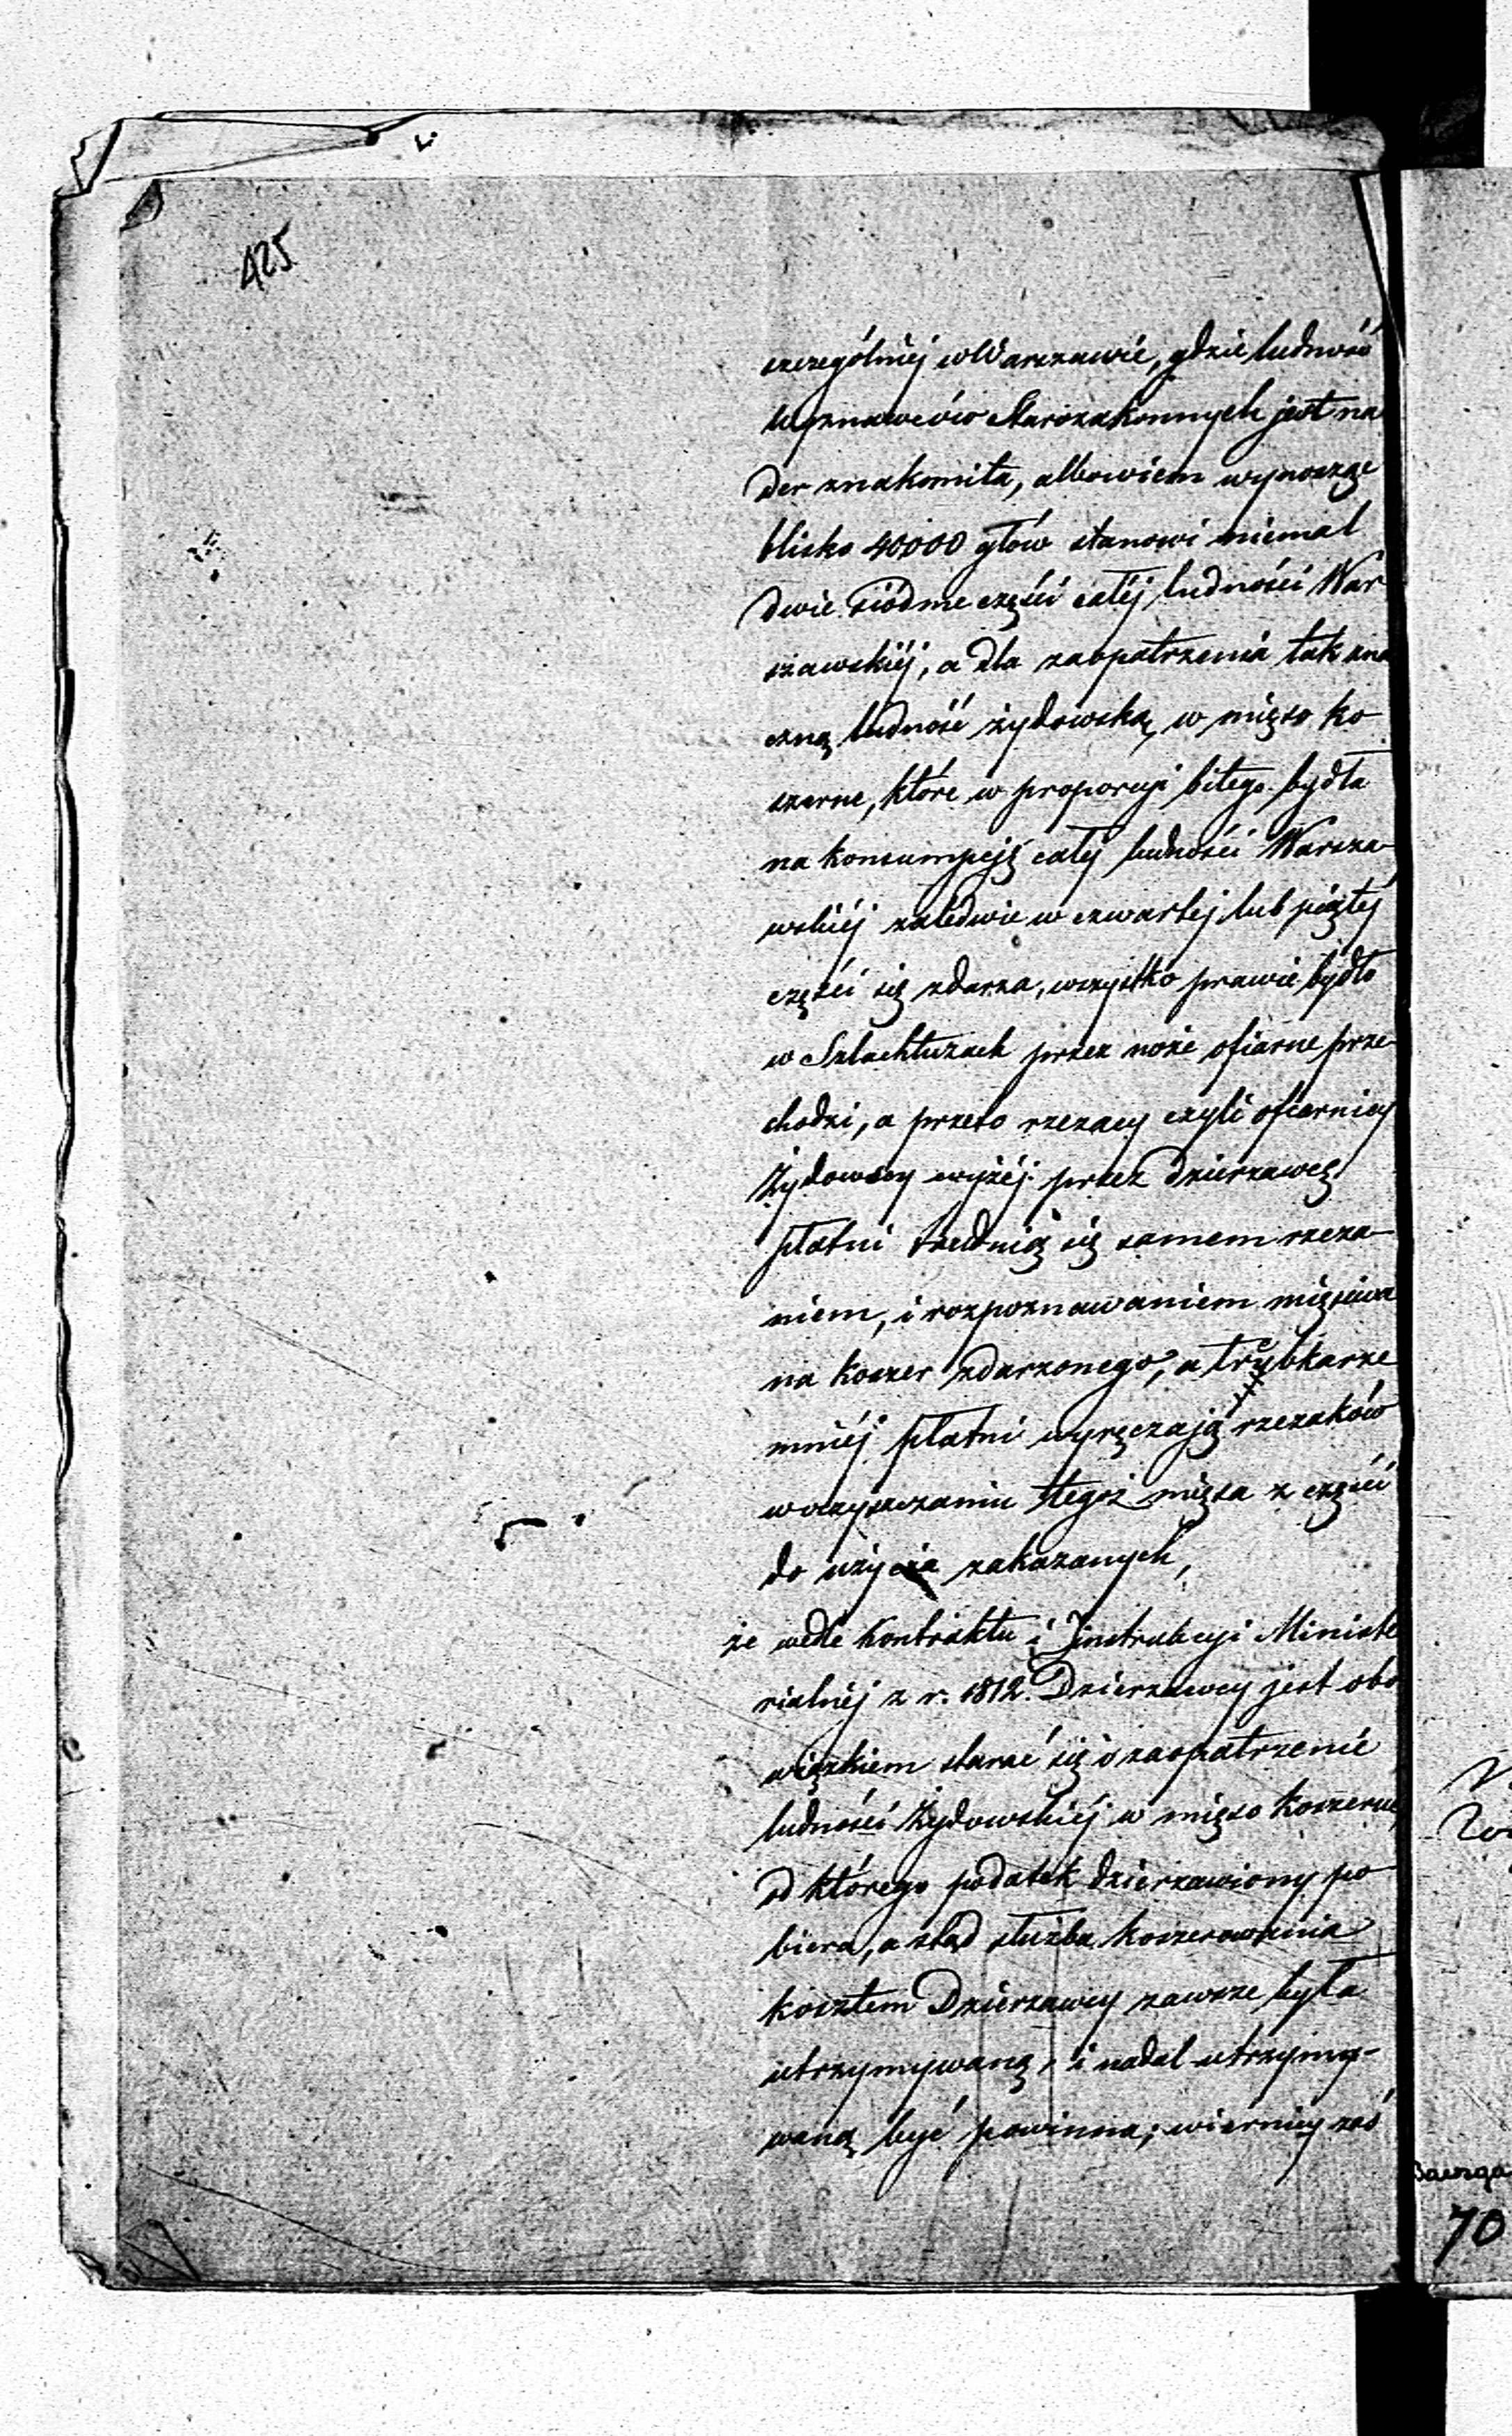 425
szczególniej w Warszawie, gdzie ludność
wyznawców Starozakonnych jest na
der znakomita, albowiem wynosząc
blisko 40000 głów stanowi niemal
dwie siódme części całéj ludności War
szawskiéj, a dla zaopatrzenia tak zna
czną ludność żydowską, w mięso ko
szerne, które w proporcyi bitego bydła
na konsumpcję całéj ludności Warsza-
wskiéj zaledwie w czwartej lub piątéj
części się zdarza, wszystko prawie bydło
w Szlachtuzach przez noże ofiarne prze-
chodzi, a przeto rzezacy czyli ofiarnicy
Żydowscy wyżéj przez Dzierżawcę
płatni trudnią się samem rzeza-
niem, i rozpoznawaniem mięsiwa
na koszer zdarzonego, a trybkarze
mniéj płatni wyręczają rzezaków
w oczyszczaniu tegoż mięsa z części
do użycia zakazanych,
że wedle Kontraktu i Jinstrukcyi Ministe
rialnéj z r. 1812. Dzierżawcy jest obo
wiązkiem starać się o zaopatrzenie
ludności Żydowskiéj w mięso koszerne,
od którego podatek dzierżawiony po-
biera, a ztąd służba koszerowania
kosztem Dzierżawcy zawsze była
utrzymywaną, i nadal utrzymy-
waną być powinna; wiernicy zaś
70